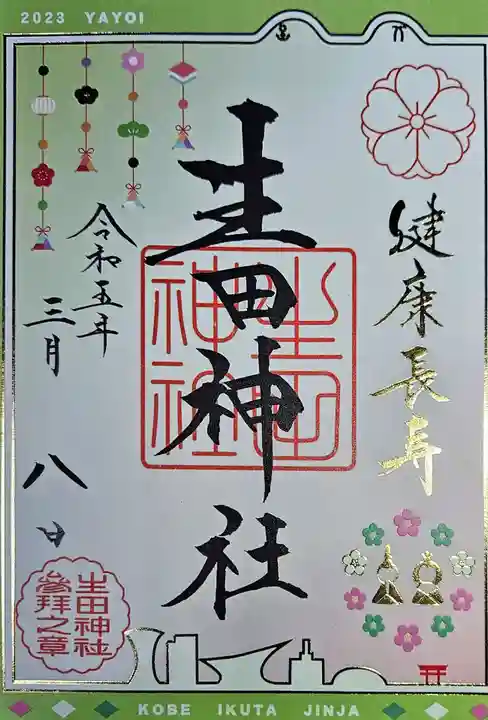 2023 YAYOI
健康長寿
生田神社
生田
神社
令和五年
三月
八日
生田神社
參拜之章
KOBE IKUTA JINJA